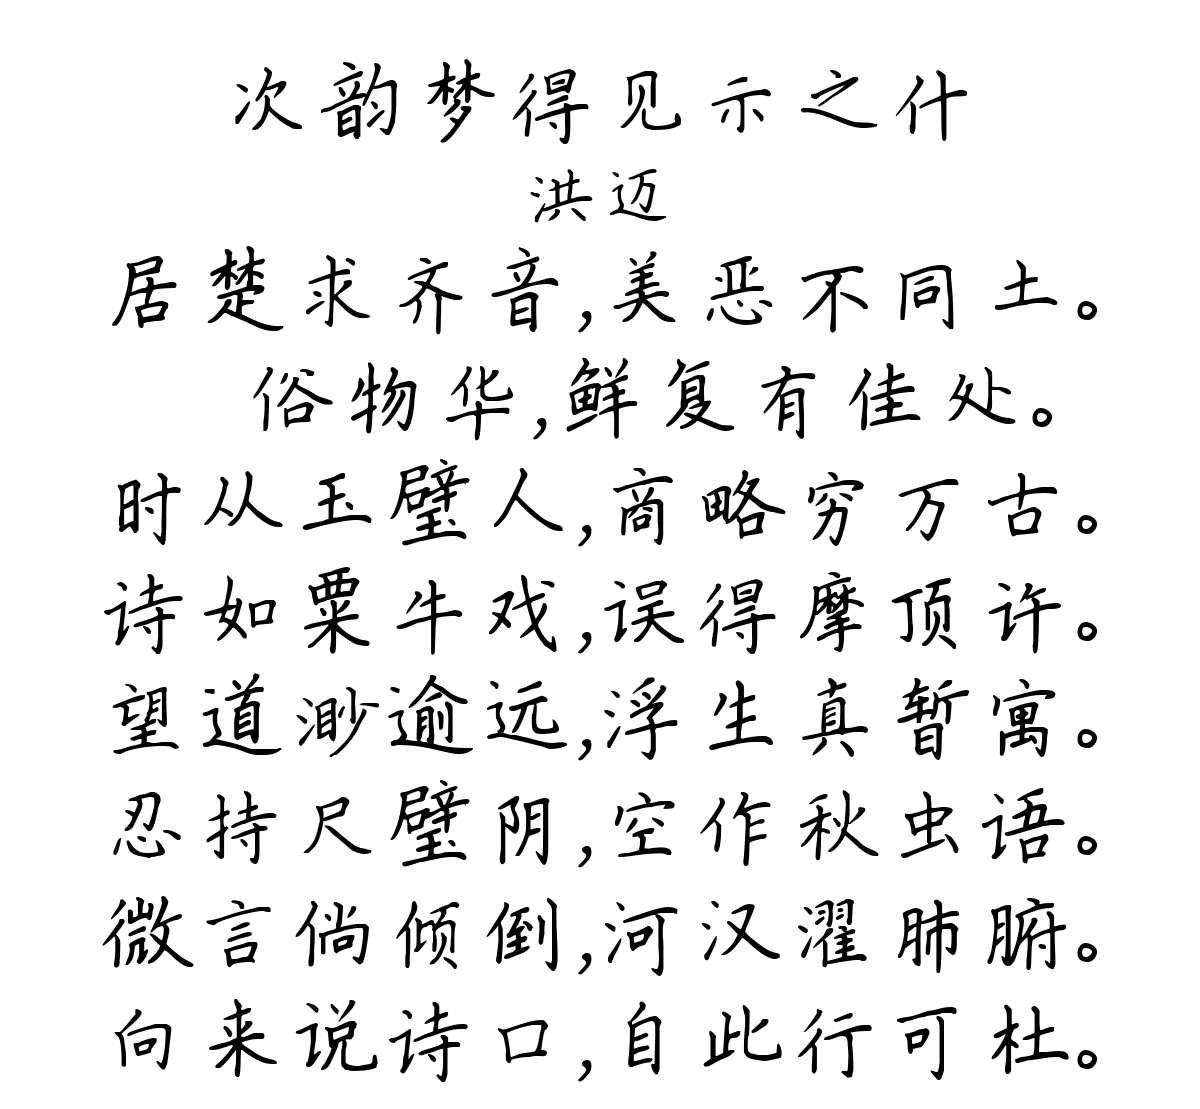 次韵梦得见示之什
洪迈
居楚求齐音,美恶不同土。
俗物华,鲜复有佳处。
时从玉璧人,商略穷万古。
诗如粟牛戏,误得摩顶许。
望道渺逾远,浮生真暂寓。
忍持尺璧阴,空作秋虫语。
微言倘倾倒,河汉濯肺腑。
向来说诗口,自此行可杜。